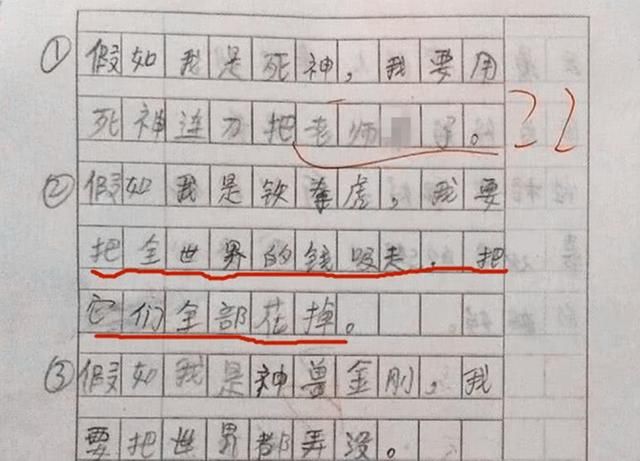 ① 假如我是死神，我要用
死神连刀把老师 了。 22
② 假如我是铁拳虎，我要
把全世界的钱吸走，把
它们全部花掉。
③ 假如我是神兽金刚，我
要把世界都弄没。